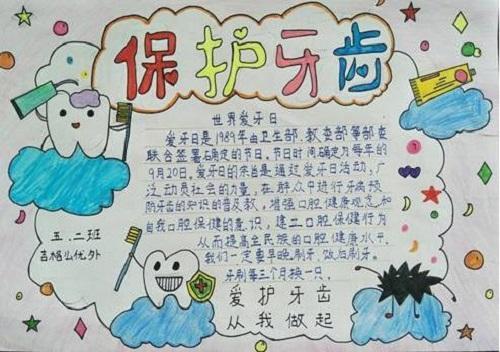 保护牙齿
世界爱牙日
爱牙日是1989年由卫生部、教委部等部委
联合签署确定的节日,节日时间确定为每年的
9月20日。爱牙日的宗旨是通过爱牙日活动,广
泛动员社会的力量,在群众中进行牙病预
防牙齿的知识的普及教,增强口腔健康观念和
自我口腔保健的意识,建立口腔保健行为
从而提高全民族的口腔健康水平。
我们一定要早晚刷牙,饭后刷牙。
牙刷等三个月换一只。
五、二班
爱护牙齿
从我做起